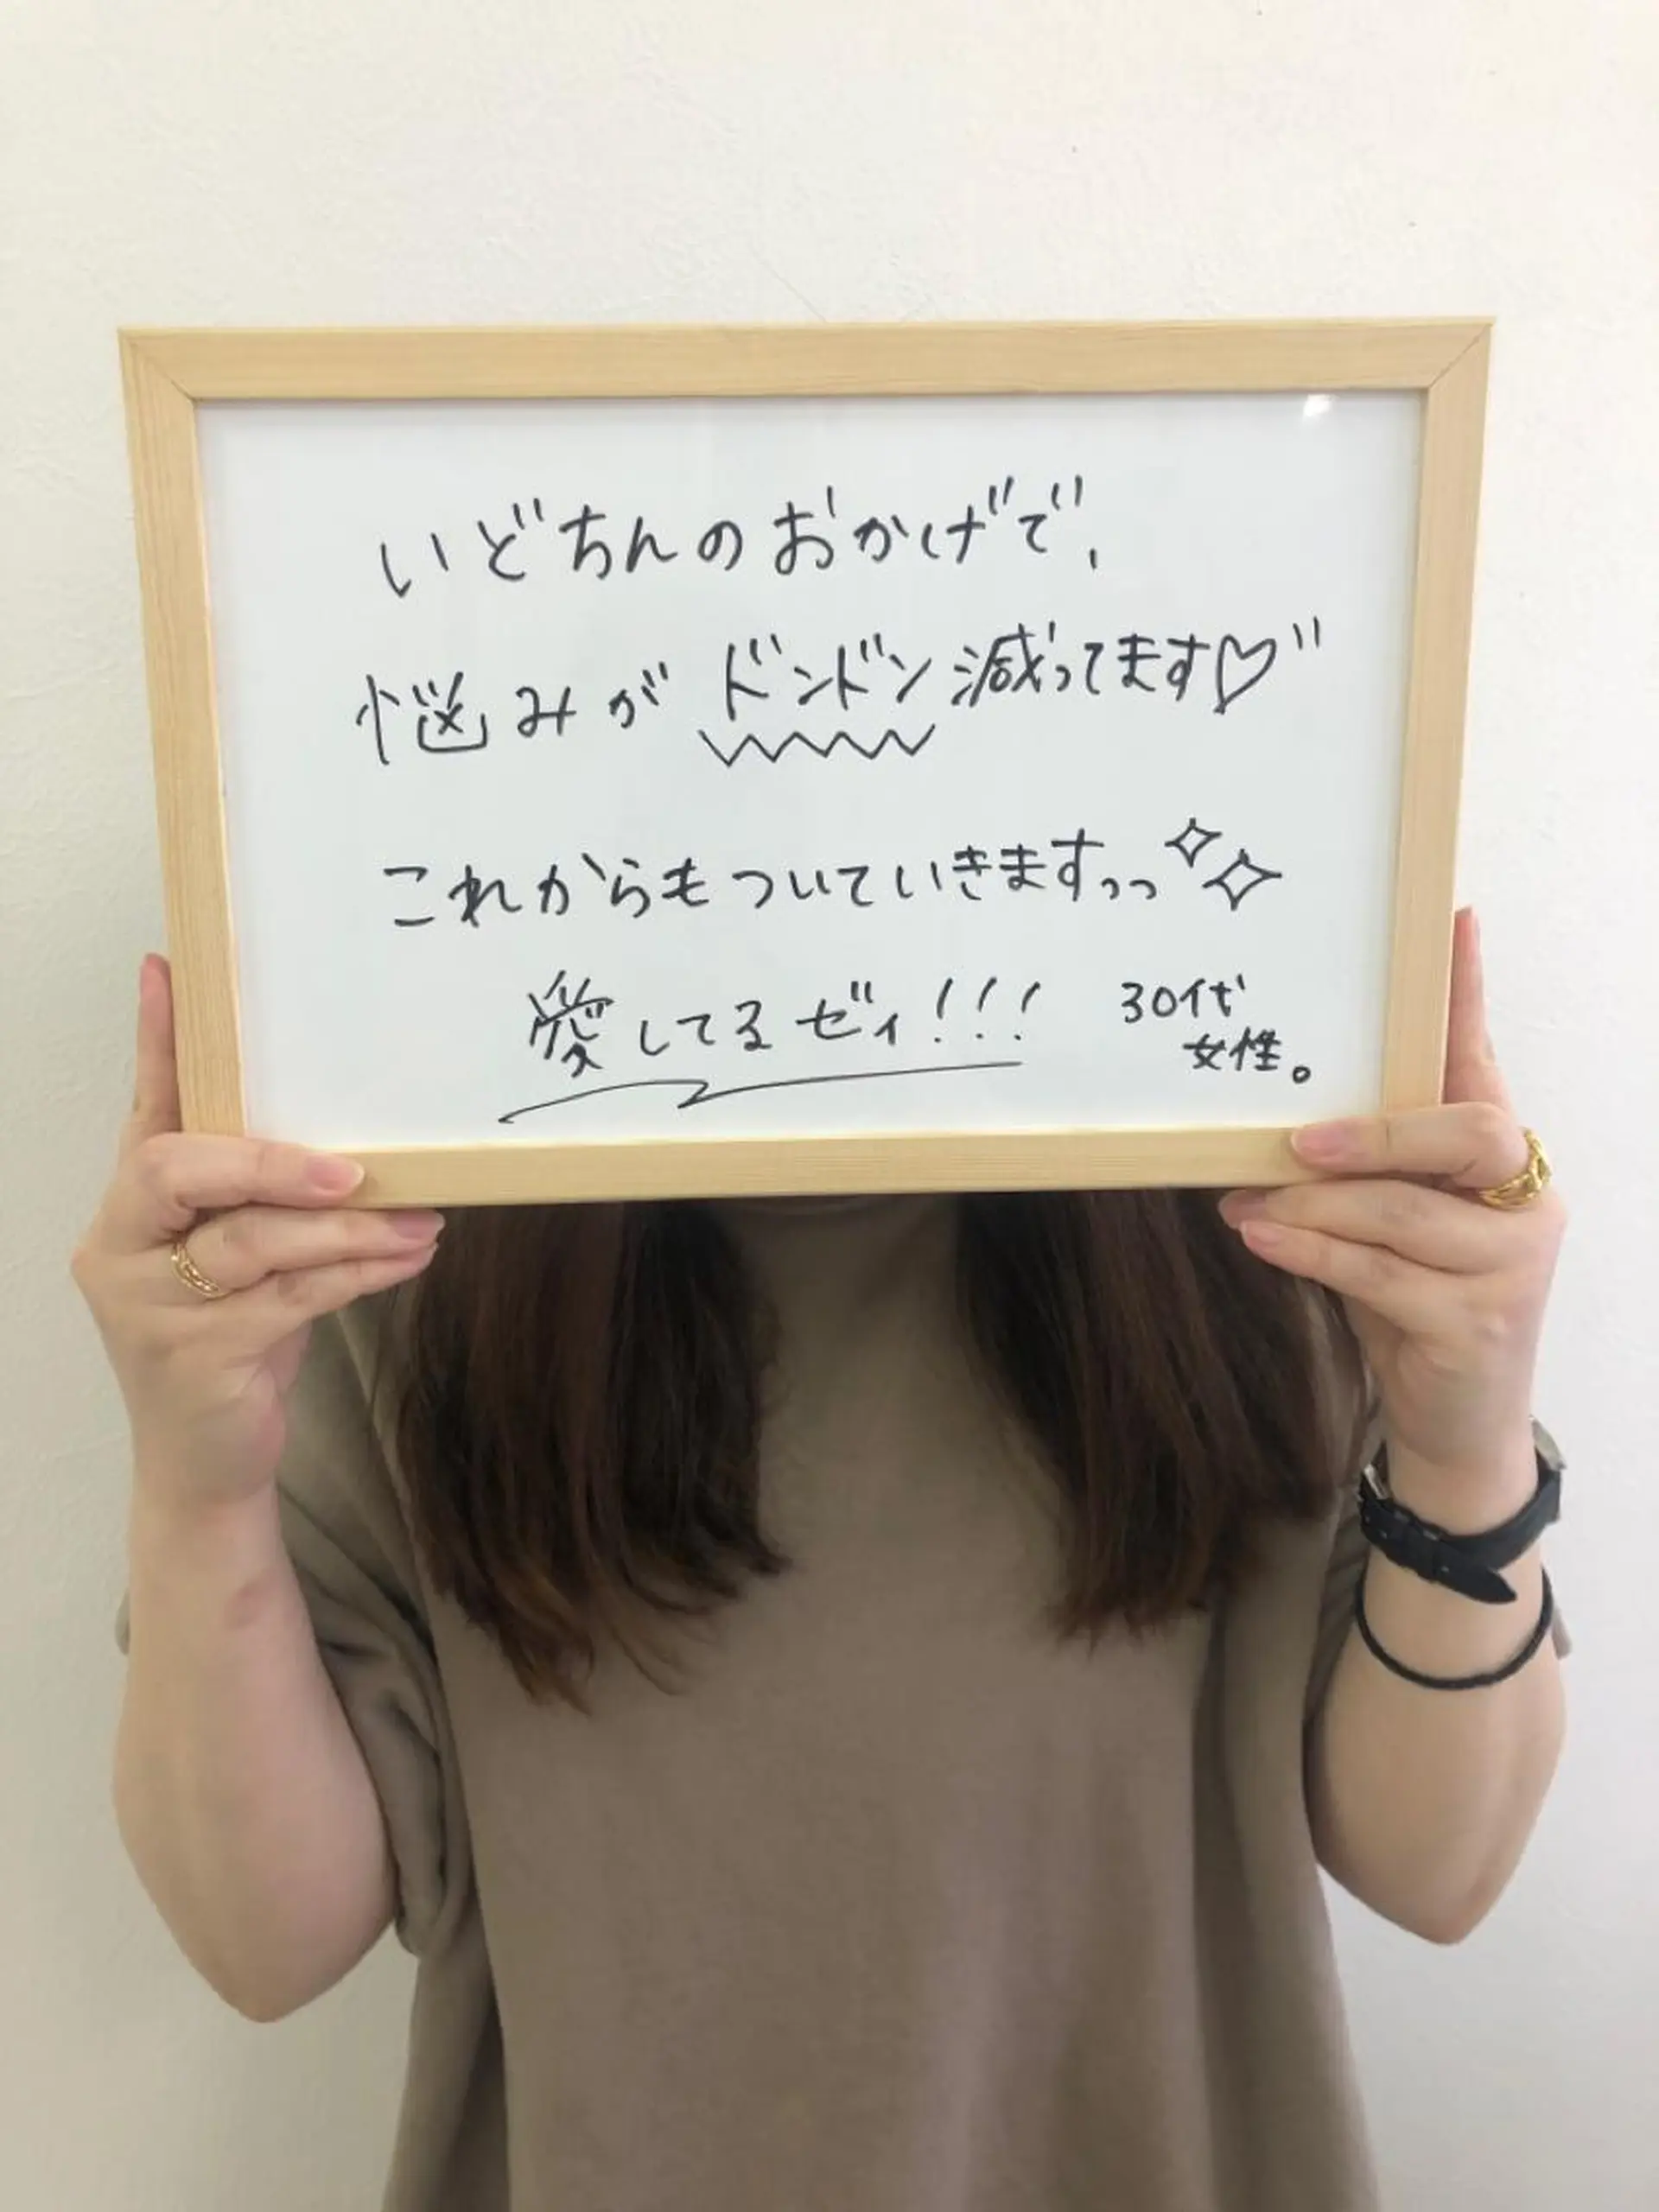 いどちんのおかげで、
悩みがドンドン減ってます♡"
これからもついていきますっっ✧✧
愛してるゼィ!!!
30代
女性。